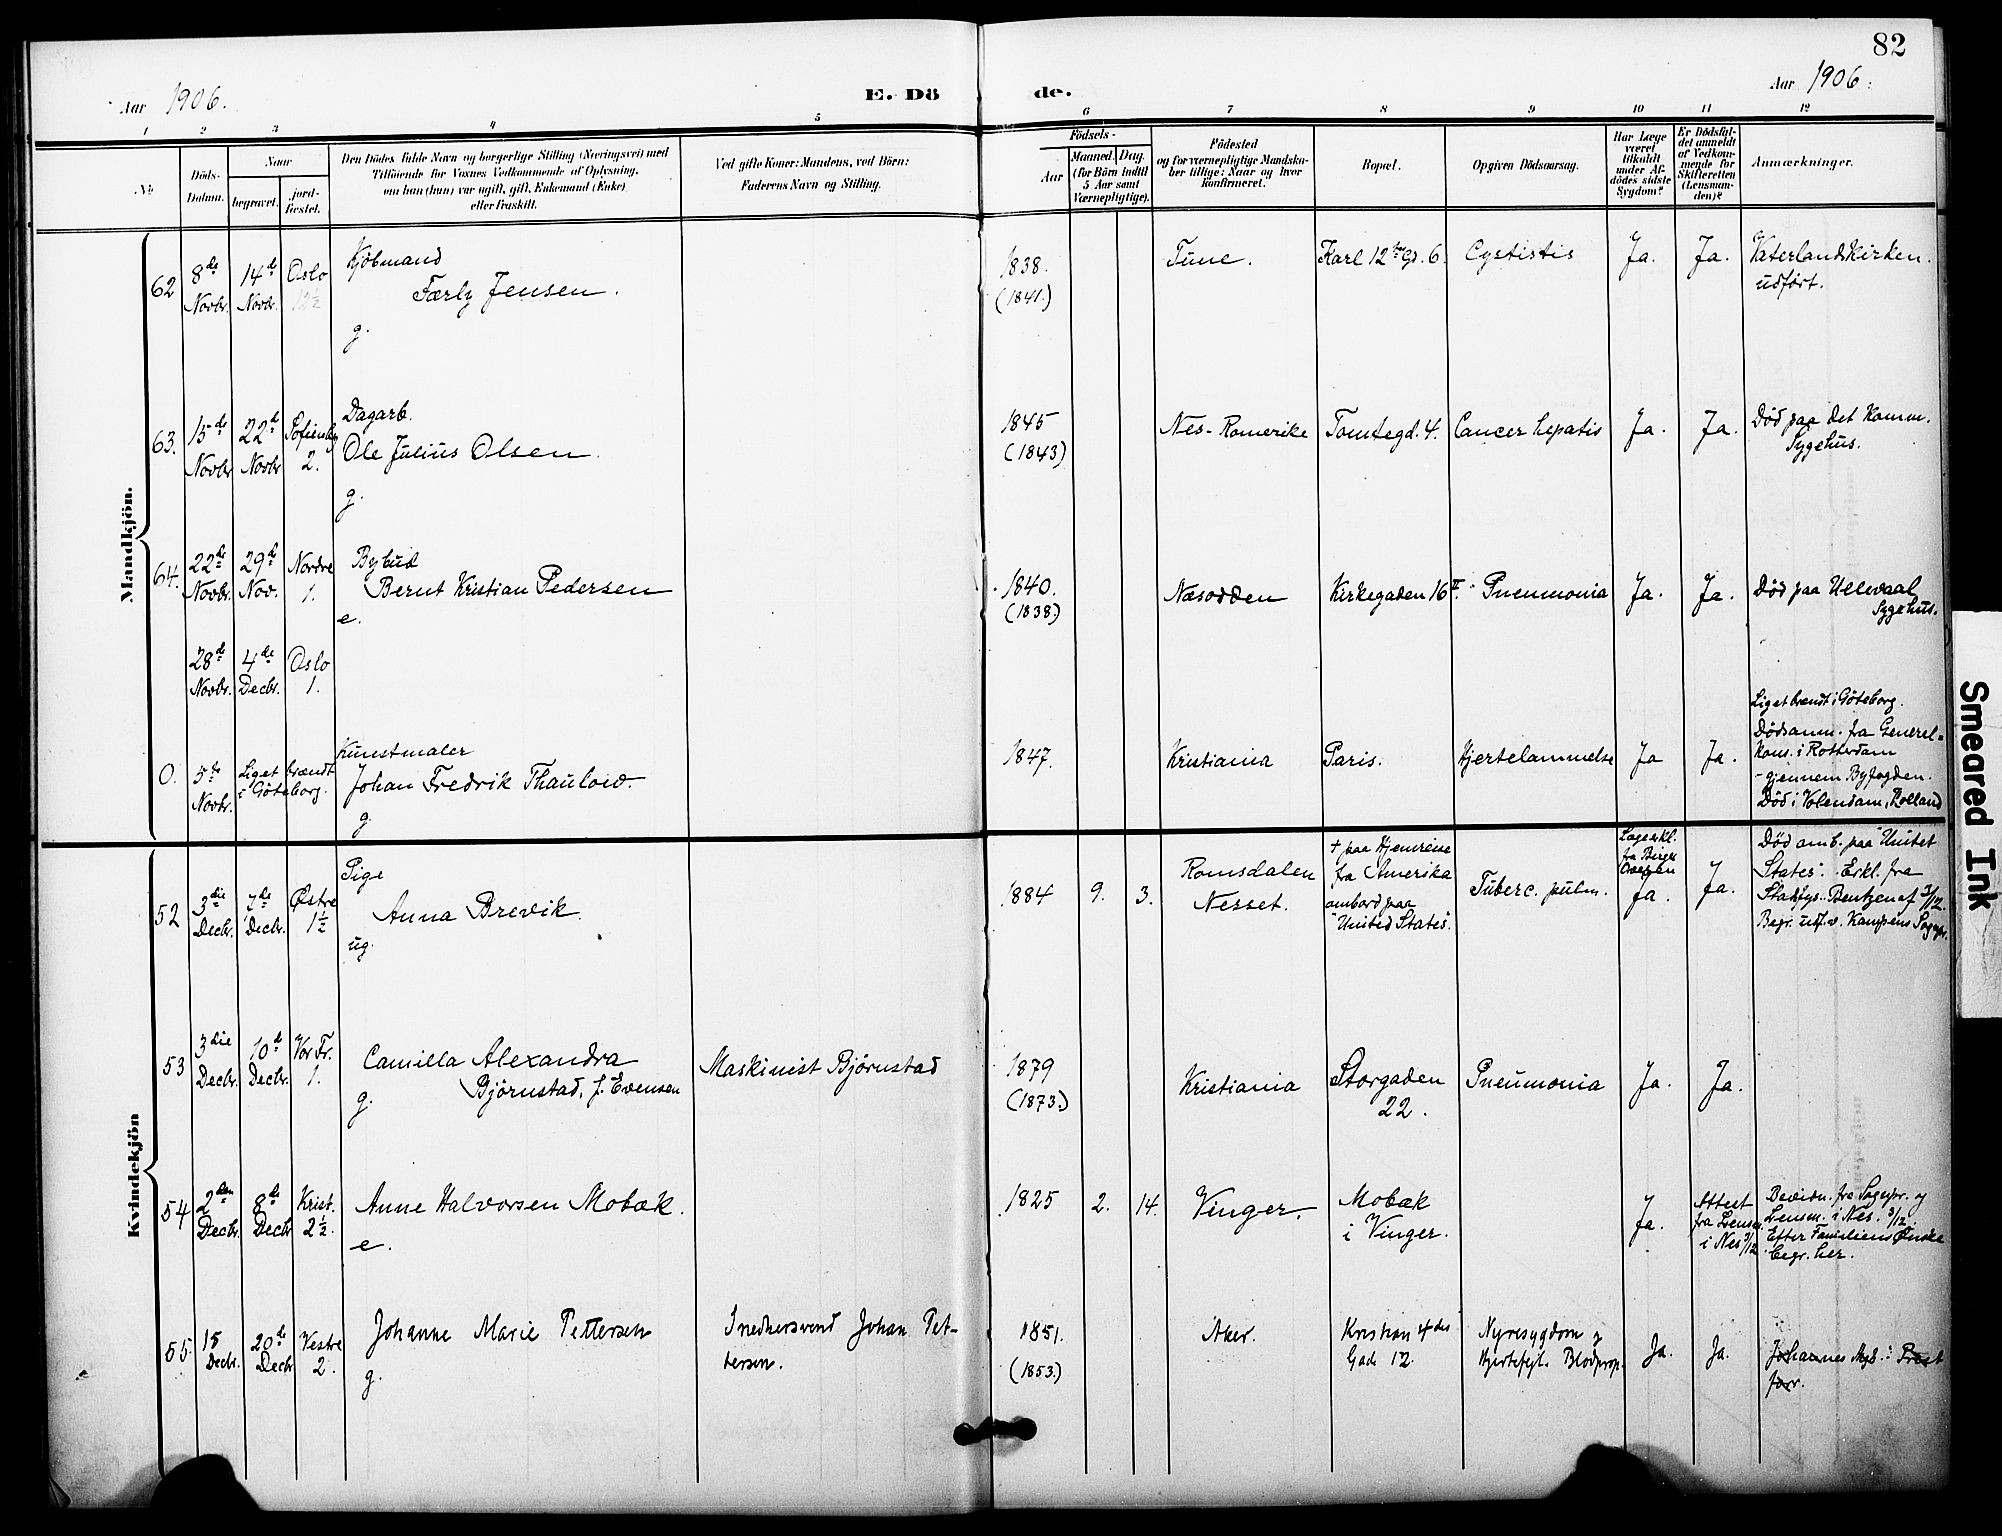 82
Aar 1906.
E. Dö
de.
Aar 1906.
1 2 3 4 5 6 7 8 9 10 11 12
No
Döds-
Datum.
Naar
begravet.
jord-
fæstet.
Den Dödes fulde Navn og borgerlige Stilling (Næringsvei) med
Tilföiende for Voxnes Vedkommende af Oplysning,
om han (hun) var ugift, gift, Enkemand (Enke)
eller fraskilt.
Ved gifte Koner: Mandens, ved Börn:
Faderens Navn og Stilling.
Födsels-
Aar
Maaned. Dag.
(for Börn indtil
5 Aar samt
Værnepligtige).
Födested
og for værnepligtige Mandska-
ber tillige: Naar og hvor
konfirmeret.
Bopæl.
Opgiven Dödsaarsag.
Har Læge
været
tilkaldt
under Af-
dödes sidste
Sygdom?
Er Dödsfal-
det anmeldt
af Vedkom-
mende for
Skifteretten
(Lensman-
den)?
Anmærkninger.
Mandkjön.
62
8de
Novbr.
14de
Novbr.
Oslo
12½
Kjøbmand
Færly Jensen.
g.
1838.
(1841.)
Tune.
Karl 12tes Gd. 6.
Cystistis
Ja.
Ja.
Vaterlandskirken.
udført.
63.
15de
Novbr
22de
Novbr
Sofienbg
2.
Dagarb.
Ole Julius Olsen.
g.
1845
(1843)
Nes-Romerike
Tomtegd. 4.
Cancer hepatis
Ja.
Ja.
Død paa det Komm.
Sygehus.
64.
22de
Novbr.
29de
Nov.
Nordre
1.
Bybud
Bernt Kristian Pedersen
e.
1840.
(1838.)
Næsodden
Kirkegaden 16 II.
Pneumonia
Ja.
Ja.
Død paa Ullevaal
Sygehus.
28de
Novbr.
4de
Decbr.
Oslo
1.
0.
5te
Novbr.
Liget brændt
i Göteborg.
Kunstmaler
Johan Fredrik Thaulow.
g.
1847.
Kristiania
Paris.
Hjertelammelse
Ja
Ja.
Liget brændt i Göteborg.
Dødsanm. fra General-
Kons. i Rotterdam
- gjennem Byfogden.
Død i Volendam, Holland
Kvindekjön
52
3die
Decbr.
7de
Decbr.
Østre
1½
Pige
Anna Brevik.
ug.
1884
9.
3.
Romsdalen
Nesset.
† paa Hjemreise
fra Amerika
ombord paa
"United States".
Tuberc. pulm.
Lægeerkl.
fra Birger
Ja.
Ja.
Død omb. paa "United
States". Erkl. fra
Bentzen af 3/12.
Begr. udf. v. Kampens Sognepr.
53
3die
Decbr.
10de
Decbr.
Vor Fr.
1.
Camilla Alexandra
Bjørnstad, f. Evensen
g.
Maskinist Bjørnstad
1879
(1873.)
Kristiania
Storgaden
22.
Pneumonia
Ja.
Ja.
54
2den
Decbr.
8de
Decbr
Krist.
2½.
Anne Halvorsen Mobæk.
e.
1825
2.
14.
Vinger.
Mobæk
i Vinger.
Ja.
Attest
fra Lensm.
i Nes 3/12
Bevidn. fra Sognepr. og
Lensm. i Nes. 3/12.
Efter Familiens Ønske
begr. her.
55.
15
Decbr.
20de
Decbr
Vestre
2.
Johanne Marie Pettersen
g.
Snedkersvend Johan Pet-
tersen.
1851.
(1853.)
Aker.
Kristian 4des
Gade 12.
Nyresygdom og
Hjertefejl. Blodprop.
Ja.
Ja.
Johannes Prest
forr.
Smeared Ink